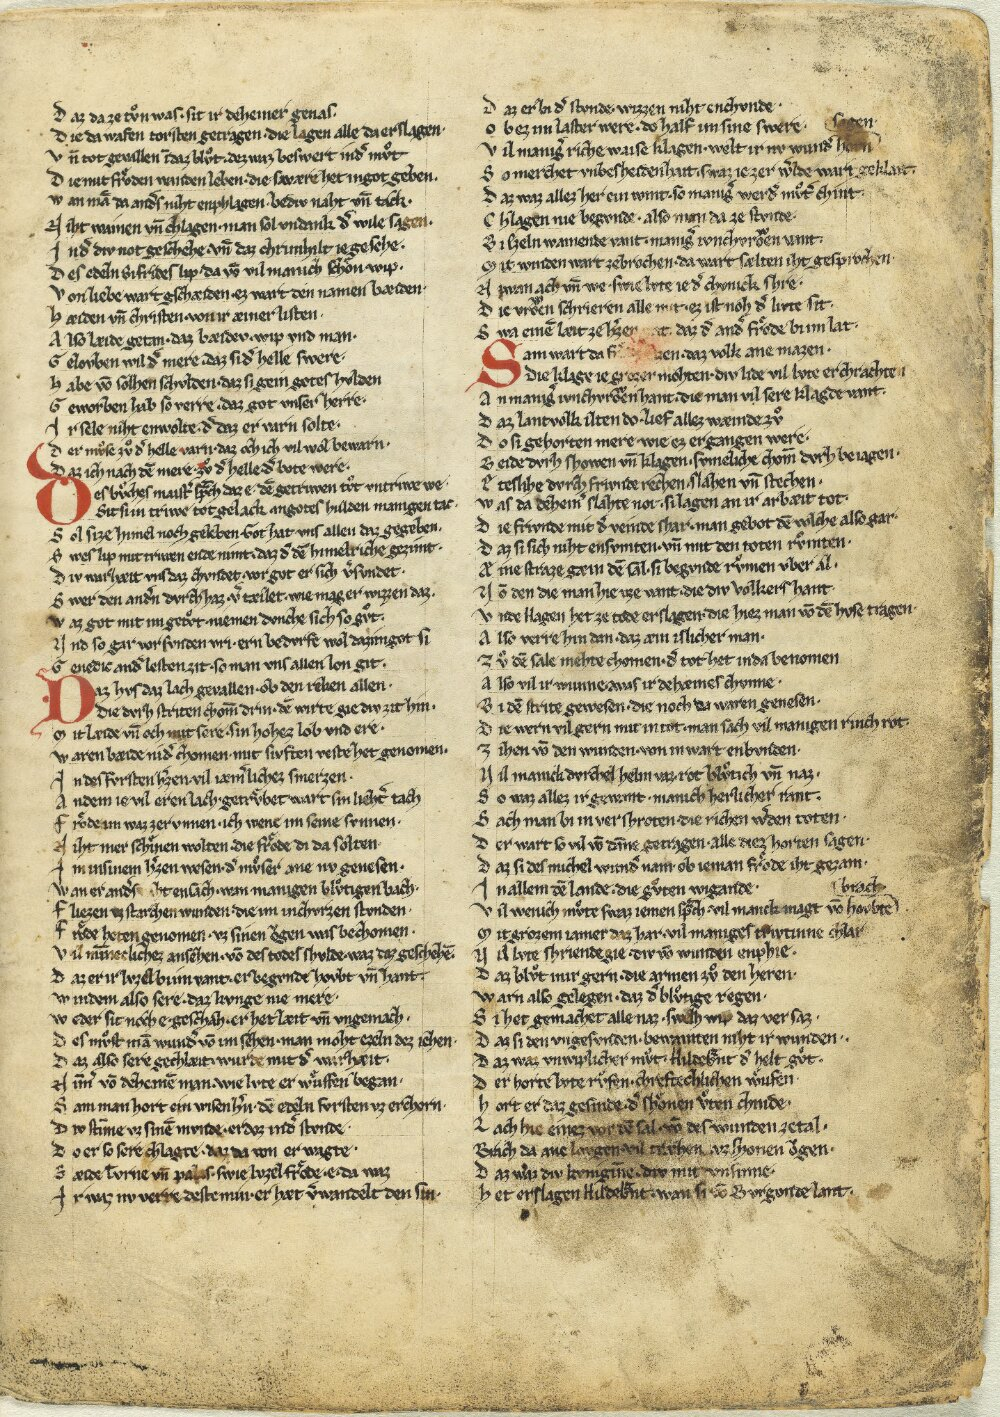 Daz da ze tv̊n was. sit ir deheiner genas.
Die da wafen torsten getragen. die lagen alle da erslagen.
Vn̄ tot gevallen in daz blv̊t. dez waz beswert ind' mv̊t
Die mit fro̊den wanden leben. die swære het in got geben.
wan mā da anders niht enphlagen. bediv naht vn̄ tack.
Niht wainen vn̄ chlagen. man sol vndank d' wile sagen.
Ind' div not geschehe. vn̄ daz chrimhilt ie gesehe.
Des edeln Sifrides lip. da vō vil manich scho̊n wip.
Von liebe wart gschæiden. ez wart den namen bæiden.
hæiden vn̄ christen. von ir æiner listen.
Also læide getan. daz bæidev. wip vnd man.
Gelovben wil d' mere. daz si d' helle swere.
habe vō solhen schvlden. daz si gein gotes hvlden
Geworben hab so verre. daz got vnser herre.
Ir sele niht enwolte. d' daz er varn solte.
der mv̊se zv̊ d' helle varn. daz och ich vil wol bewarn.
Daz ich nach dē mere. zv̊ d' helle d' bote were.
Des bv̊ches maist' sp̄ch daz e. dē getriwen tv̊t vntriwe we.
Sit si in triwe tot gelack. an gotes hulden manigen tac.
Sol si ze himel noch geleben. Got hat vns allen daz gegeben.
Swes lip mit triwen ende nimt. daz d' dē himelriche gezimt.
Div warhæit vns daz chvndet. vor got er sich v'svndet.
Swer den andern dvrch haz. v'tæilet. wie mag er wizzen daz.
waz got mit im getv̊t. niemen dunche sich so gv̊t.
Und so gar vor svnden vri. ern bedvrfe wol daz im got si
Genedic an d' lesten zit. so man vns allen lon git.
Daz hvs daz lach gevallen. ob den reken allen.
Die dvrh striten chom̄ drin. dē wirte gie div zit hin.
Mit læide vn̄ och mit sere. sin hohez lob vnd ere.
waren bæide nid' chomen. mit sivften veste het genomen.
In des fvrsten h'zen. vil iæm'lichez smerzen.
An dem ie vil eren lach. getrv̊bet wart sin lieht' tach
Fro̊de im waz zervnnen. ich wene im seine svnnen.
Niht mer schinen wolten. die fro̊de di da solten.
In in sinem h'zen wesen. d' mv̊ser ane nv genesen.
wan er anders niht ensach. wan manigen blv̊tigen bach.
Fliezen vz starchen wunden. die im in chvrzen stvnden
Fro̊de heten genomen. vz sinen o̊gen was bechomen.
Vil minneclichez ansehen. vō des todes shvlde. waz daz geschehē.
Daz er ir lvzel bi im vant. er begvnde hovbt vn̄ hant.
windem also sere. daz kvnge nie mere.
weder sit noch e. geschah. er het læit vn̄ vngemach.
Des mv̊st mā wund' vō im sehen. man moht ezeln dez iehen.
Daz also sere gechlæit. wurde mit d' warhæit.
Nimm' vō deheinē man. wie lvte er wu̇ffen began.
Sam man hort ein wisen h'n. dē edeln fvrsten vz erchorn.
Div stim̄e vz sinē mvnde. erdoz in d' stvnde.
Do er so sere chlagte. daz da von er wagte.
Bæide tvrne vn̄ palas. swie lvzel fro̊de. e. da waz
Ir waz nv verre deste min. er hæt v'wandelt den sin.
Daz er bi d' stvnde. wizzen niht enchvnde.
Ob ez im laster were. do half im sine swere.
Vil manig' riche waise klagen. welt ir nv wund' horn sagen
So merchet vnbescheidenhait. swaz ie zer w'lde wart geklait.
Daz waz allez her ein wint. so manig' werd' mv̊t' chint.
Chlagen nie begvnde. also man da ze stvnde.
Bi ezeln wainende vant. manig' ivnchvro̊en vant.
Mit winden wart zebrochen. da wart sælten iht gesprochen.
Niwan ach vn̄ we. swie lvte ie d' chonick shre.
Die vro̊en schrieren alle mit. ez ist noh d' livte sit.
Swa einē læit ze h'zen gat. daz d' and' fro̊de bi im lat.
Sam wart da daz volk ane mazen.
Die klage ie grozer mohten. div lide vil lvte erchrachten
An manig' ivnchvro̊en hant. die man vil sere klagde vant.
Daz lantvolk ilten do. lief allez wæinde zv̊
Do si gehorten mere. wie ez ergangen were.
Beide dvrh showen vn̄ klagen. svmeliche chom̄ dvrh beiagen.
Eteslihe dvrch frivnde rechen. slahen vn̄ stechen.
was da deheim' slahte not. si lagen an ir arbæit tot.
Die frivnde mit d' veinde shar. man gebot dē volche also gar.
Daz si sich niht ensvmten. vn̄ mit den toten rv̊mten.
Æine straze gæin dē sal. si begvnde rv̊men vber al.
Vō den die man hie vze vant. die div volkers hant
Vnde Hagen het ze tode erslagen. die hiez man vō dē hvse tragen.
Also verre hin dan. daz æin islicher man.
Zv̊ dē sale mehte chomen. d' tot het in da benomen
Also vil ir wnne. swas ir dehæines chvnne.
Bi dē strite gewesen. die noch da waren genesen.
Die wern vil gern mit in tot. man sach vil manigen rinch rot.
Zihen vō den wunden. von in wart enbvnden.
Vil manick dvrchel helm vaz. rot blv̊tich vn̄ naz.
So waz allez ir gewant. manich herlicher rant.
Sach man bi in vershroten. die richen w'den toten.
Der wart so vil vō dan̄e getragen. alle diez horten sagen.
Daz si des michel wund' nam. ob ieman fro̊de iht gezam.
In allem dē lande. die gv̊ten wigande.
Vil wenich mv̊te swaz iemen sp̄ch. vil manick magt vō hovbte brach
Mit grozem iamer daz har. vil maniges thivtinne chlar
Vil lvte shriende gie. div vō wunden enphie.
Daz blv̊t nur gern. die armen zv̊ den heren.
warn also gelegen. daz d' blv̊tige regen.
Si het gemachet alle naz. swelh wip daz versaz.
Daz si den vngesvnden. bewanten niht ir wunden.
Daz waz vnwiplicher mv̊t. Hildebrant d' helt gv̊t.
Der horte lvte rv̊fen. chreftechlichen wu̇fen
hort er daz gesinde. d' scho̊nen v̊ten chinde.
Lach hie einez vor dē sal. vō des wunden zetal.
Brach da ane lovgen. vil træhen vz shonen o̊gen.
Daz waz div kvniginne. div mit vnsinne.
het erslagen Hildebrant. wan si vō Bvrgonde lant.